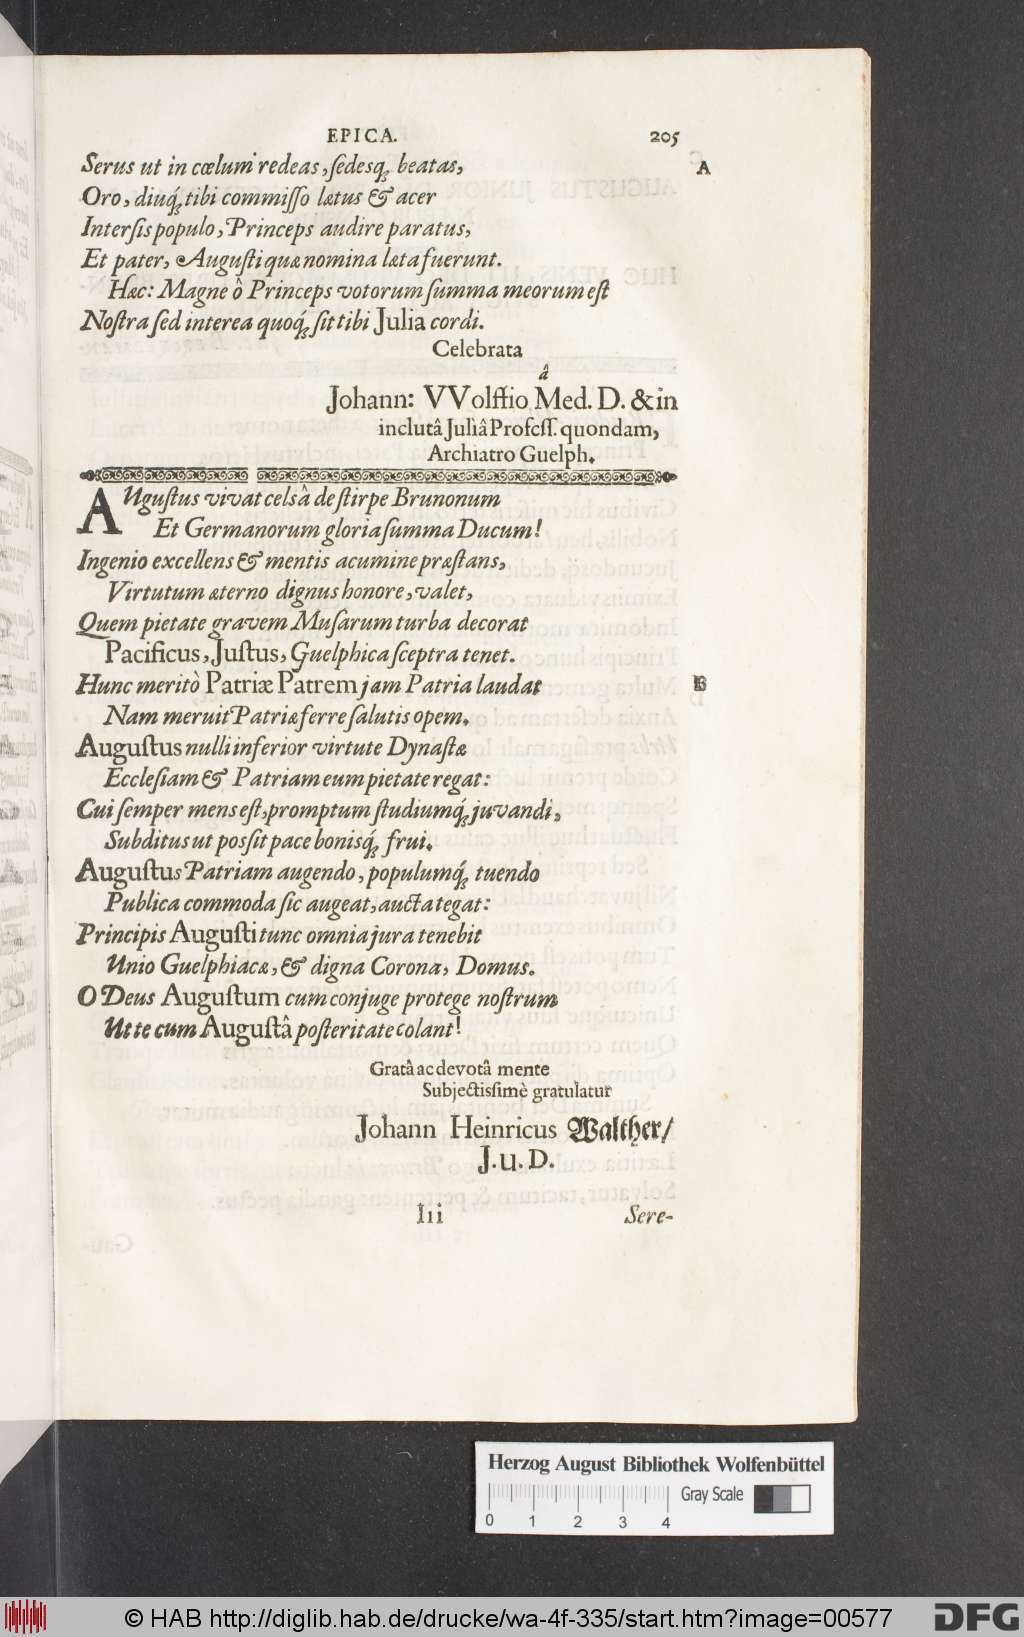 EPICA. 205
Serus ut in cœlum redeas, sedesq́; beatas, A
Oro, diuq́; tibi commisso lætus & acer
Intersis populo, Princeps audire paratus,
Et pater, Augusti quæ nomina læta fuerunt.
Hæc: Magne ô Princeps votorum summa meorum est
Nostra sed interea quoq́; sit tibi Julia cordi.
Celebrata
â
Johann: VVolffio Med. D. & in
inclutâ Juliâ Profess. quondam,
Archiatro Guelph.
AUgustus vivat celsâ de stirpe Brunonum
Et Germanorum gloria summa Ducum!
Ingenio excellens & mentis acumine præstans,
Virtutum æterno dignus honore, valet,
Quem pietate gravem Musarum turba decorat
Pacificus, Justus, Guelphica sceptra tenet.
Hunc meritò Patriæ Patrem jam Patria laudat B
Nam meruit Patriæ ferre salutis opem.
Augustus nulli inferior virtute Dynastæ
Ecclesiam & Patriam eum pietate regat:
Cui semper mens est, promptum studiumq́; juvandi,
Subditus ut possit pace bonisq́; frui.
Augustus Patriam augendo, populumq́; tuendo
Publica commoda sic augeat, aucta tegat:
Principis Augusti tunc omnia jura tenebit
Unio Guelphiacæ, & digna Corona, Domus.
O Deus Augustum cum conjuge protege nostrum
Ut te cum Augustâ posteritate colant!
Gratâ ac devotâ mente
Subjectissimè gratulatur
Johann Heinricus Walther/
J. U. D.
Iii Sere-
Herzog August Bibliothek Wolfenbüttel
Gray Scale
0 1 2 3 4
© HAB http://diglib.hab.de/drucke/wa-4f-335/start.htm?image=00577 DFG